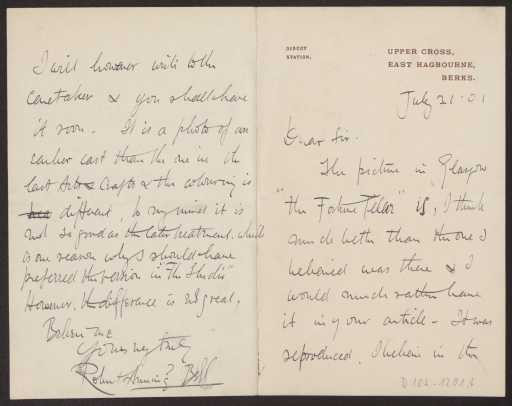 DIDCOT
STATION.
UPPER CROSS,
EAST HAGBOURNE,
BERKS.
July 21. 01
Dear Sir.
The picture in Glasgow
"the Fortune Teller" is, I think
much better than the one I
believed was there & I
would much rather have
it in your article - It was
reproduced, I believe in the
D 102-1901,6
I will however write to the
caretaker & you shall have
it soon. It is a photo of an
earlier cast than the one in the
last Arts & Crafts & the colouring is
different, to my mind it is
not so good as the later treatment. which
is one reason why I should have
preferred the version in "The Studio"
However, the difference is not great.
Believe me
Yours very truly
Robert Anning Bell